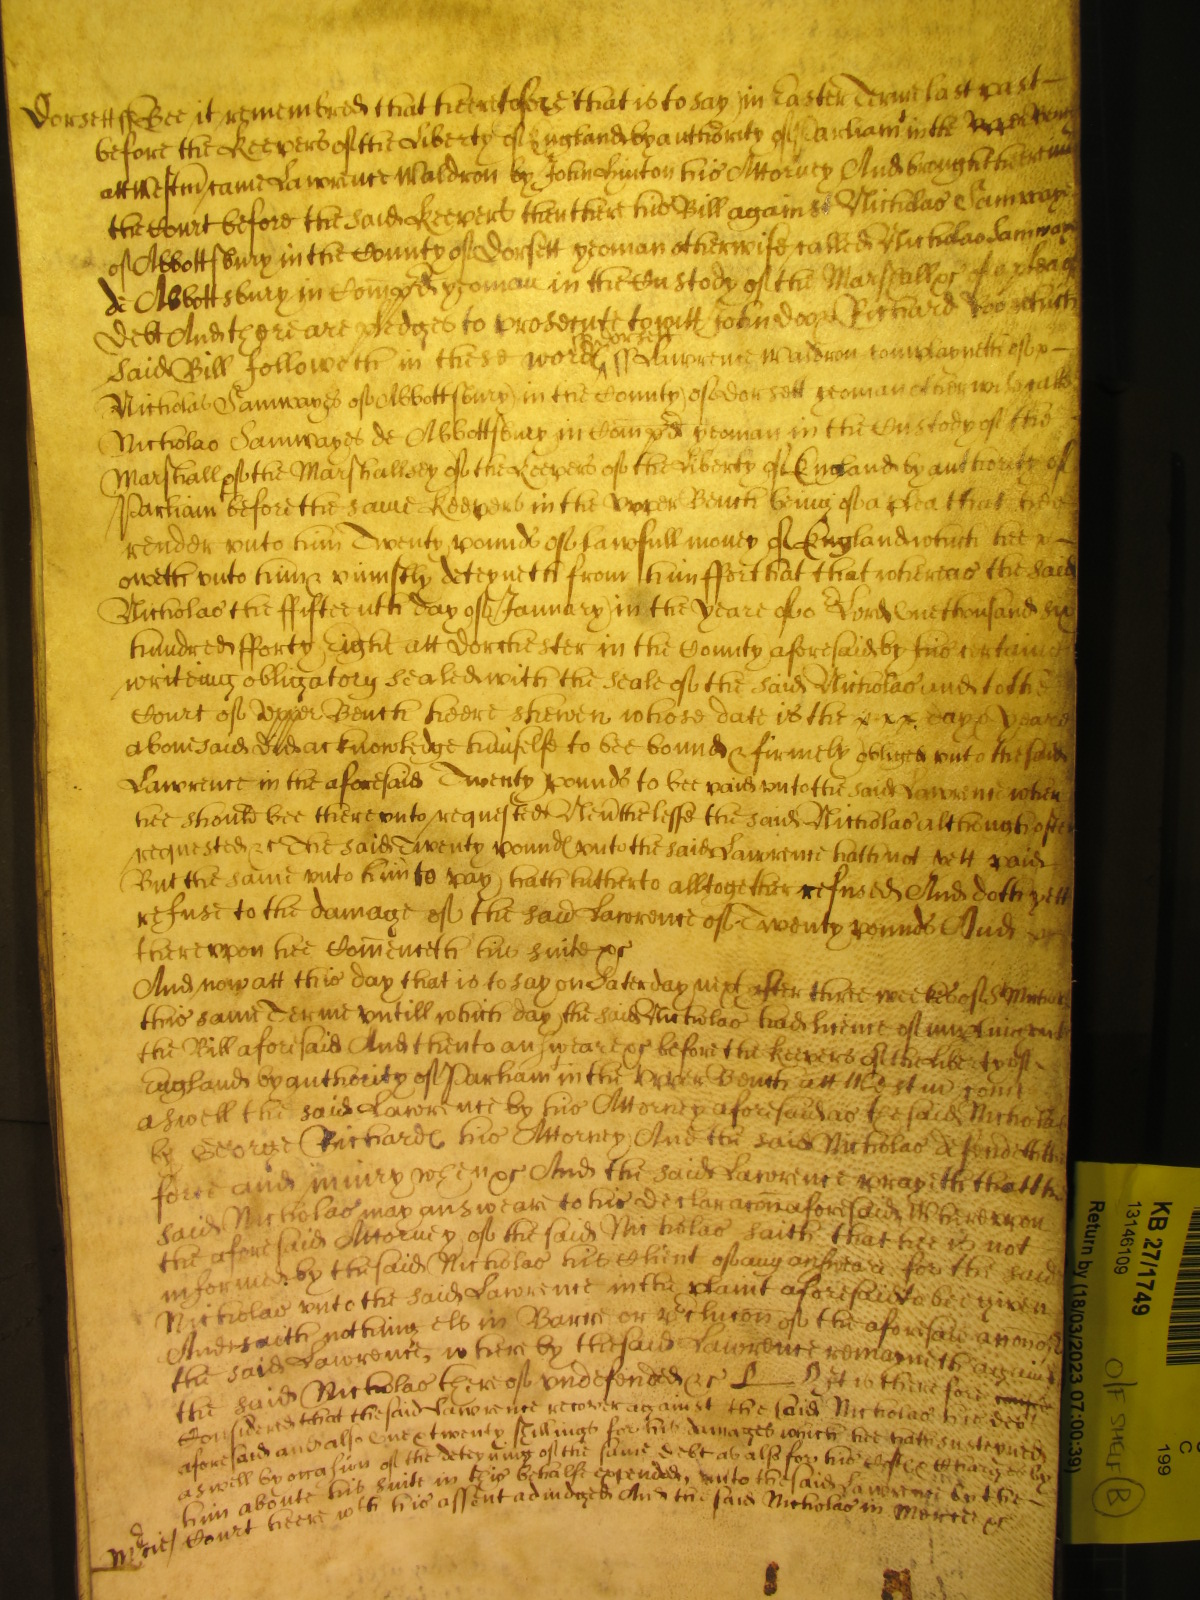 Dorsett ss Bee it remembred that heeretofore that is to say in Easter Terme last past
before the Keepers of the Liberty of England by authority of Parliam' in the Upper Bench
att Westm' came Lawrence Waldron by John Hinton his Attorney And brought heere into
the Court before the said Keepers then there his Bill against Nicholas Samwayes
of Abbottsbury in the County of Dorsett yeoman otherwise called Nicholas Samwayes
de Abbottsbury in Com' p'd' yeoman in the Custody of the Marshall &c of a plea of
Debt And there are pledges to prosecute to witt John doo & Richard Roo which
said Bill followeth in these words ss Dorsett ss Lawrence Waldron complayneth of
Nicholas Samwayes of Abbottsbury in the County of Dorsett yeoman otherwise called
Nicholas Samwayes de Abbottsbury in Com' p'd' yeoman in the Custody of the
Marshall of the Marshallsey of the Keepers of the Liberty of England by authority of
Parliam' before the same Keepers in the Upper Bench being of a plea that hee
render unto him Twenty pounds of lawfull money of England which hee
oweth unto him & uniustly deteyneth from him ffor that that whereas the said
Nicholas the ffifteenth day of January in the Yeare of o' Lord One thousand six
hundred fforty Eight att Dorchester in the County aforesaid by his certaine
writeing obligatory sealed with the seale of the said Nicholas and to the
Court of Upper Bench heere shewen whose date is the day & yeare
abovesaid did acknowledge himselfe to bee bound & firmely obliged unto the said
Lawrence in the aforesaid Twenty pounds to bee paid unto the said Lawrence when
hee should bee thereunto requested Nev'thelesse the said Nicholas although often
requested &c The said Twenty pounds unto the said Lawrence hath not yett paid
But the same unto him to pay hath hitherto alltogether refused And doth yett
refuse to the damage of the said Lawrence of Twenty pounds And
thereupon hee Comenceth his suite &c
And now att this day that is to say on Saterday next after three weekes of St Michael
this same Terme untill which day the said Nicholas had licence of imparlance unto
the Bill aforesaid And then to answeare &c before the Keepers of the Liberty of
England by authority of Parliam' in the Upper Bench att Westm' come
aswell the said Lawrence by his Attorney aforesaid as the said Nicholas
by George Richards his Attorney And the said Nicholas defendeth the
force and iniury when &c And the said Lawrence prayeth that the
said Nicholas may answeare to his declaracon aforesaid Whereupon
the aforesaid Attorney of the said Nicholas saith that hee is not
informed by the said Nicholas his Client of any answeare for the said
Nicholas unto the said Lawrence in the plaint aforesaid to bee given
And saith nothing els in Barre or p'clusion of the aforesaid accon of
the said Lawrence, whereby the said Lawrence remayneth against
the said Nicholas thereof undefended &c It is therefore
Considered that the said Lawrence recover against the said Nicholas his debt
aforesaid and also One & twenty shillings for his damages which hee hath susteyned
aswell by occasion of the deteyning of the same debt as also for his Costs & Charges by
him aboute his suite in this behalfe expended, unto the said Lawrence by the
Court heere wth his assent adiudged And the said Nicholas in Mercie &c
M'cie
KB 27/1749
13146109
Return by (18/03/2023 07:00:39)
C
199
O/F SHELF B